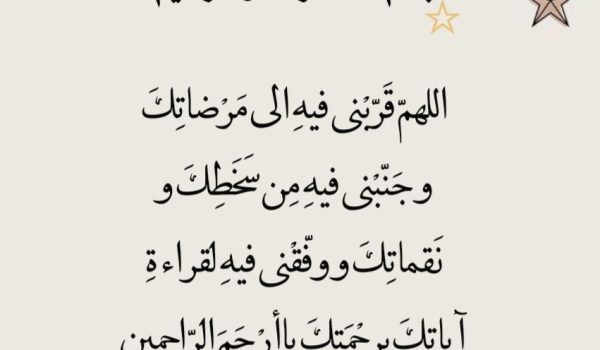 اللهمّ قَرّبْنی فیهِ الی مَرْضاتِکَ
و جَنّبْنی فیهِ مِن سَخَطِکَ و
نَقماتِکَ و وفّقْنی فیهِ لقراءةِ
آیاتِکَ بِرحْمَتِکَ یا أرْحَمَ الرّاحمین